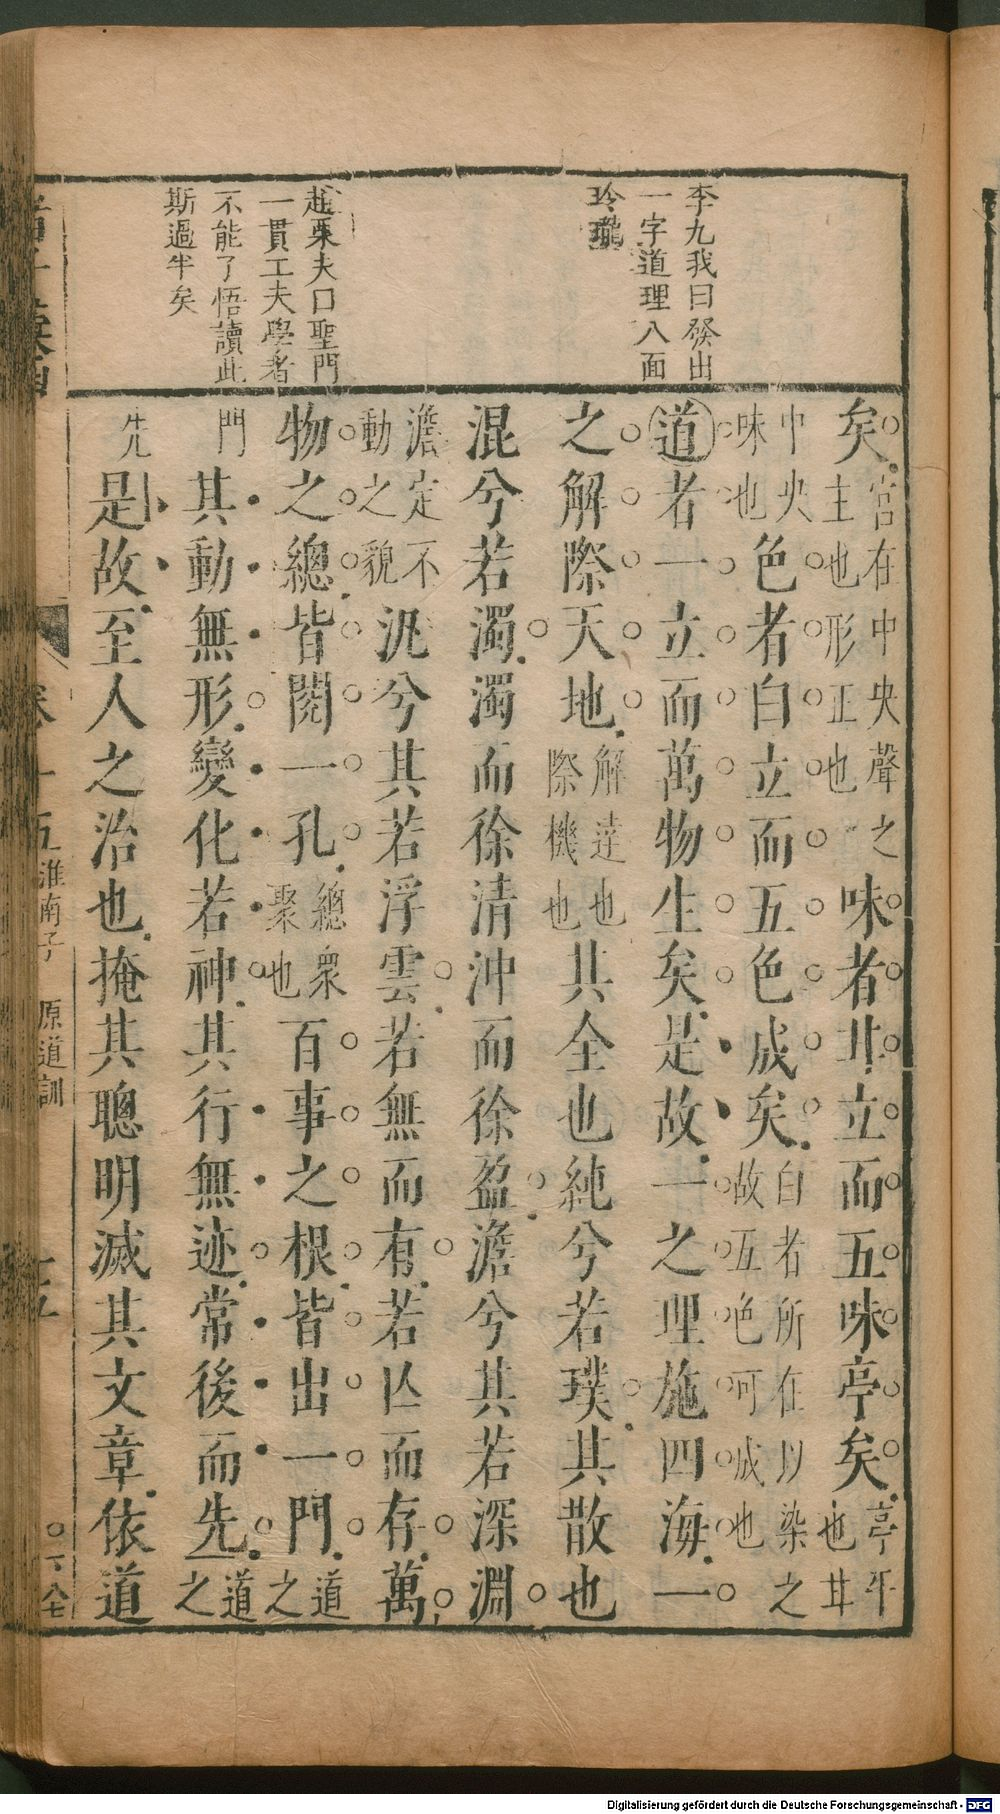 李九我曰發出
一字道理八面
玲瓏
趙栗夫曰聖門
一貫工夫學者
不能了悟讀此
斯過半矣
矣宮在中央聲之主也形正也味者甘立而五味亭矣亭平也甘
中央味也色者白立而五色成矣白者所在以染之故五色可成也
道者一立而萬物生矣是故一之理施四海一
之解際天地解達也際機也其全也純兮若璞其散也
混兮若濁濁而徐清沖而徐盈澹兮其若深淵
澹定不動之貌汎兮其若浮雲若無而有若亾而存萬
物之總皆閱一孔總衆聚也百事之根皆出一門道之
門其動無形變化若神其行無迹常後而先道之
先是故至人之治也掩其聰明滅其文章依道
卷十五
淮南子
原道訓
Digitalisierung gefördert durch die Deutsche Forschungsgemeinschaft - DFG